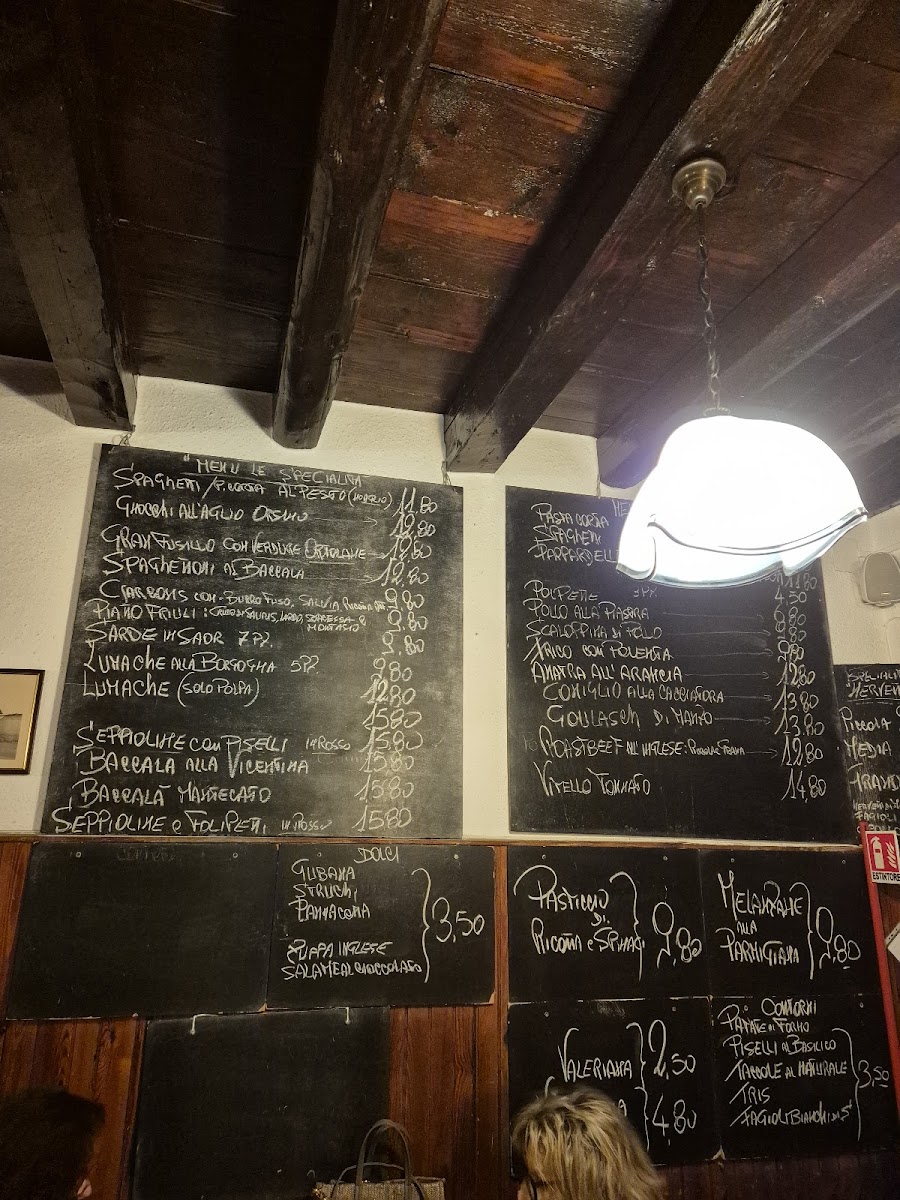 "MENU LE SPECIALITÀ
SPAGHETTI / P. CORTA AL PESTO 11,80
GNOCCHI ALL'AGLIO ORSINO 12,80
GRAN FUSILLO CON VERDURE ORTOLANE 12,80
SPAGHETTONI AL BACCALA 12,80
CJARSONS CON BURRO FUSO, SALVIA RICOTTA 9,80
PIATTO FRIULI: 9,80
MONTASIO
SARDE IN SAOR 7 PZ. 9,80
LUMACHE ALLA BORGOGNA 5 PZ. 9,80
LUMACHE (SOLO POLPA) 12,80
15,80
SEPPIOLINE CON PISELLI IN ROSSO 15,80
BACCALA ALLA VICENTINA 15,80
BACCALÀ MANTECATO 15,80
SEPPIOLINE e FOLPETTI IN ROSSO 15,80
ME
PASTA CORTA
SPAGHETTI
PAPPARDELLE
11,80
POLPETTE 4,50
POLLO ALLA
SCALOPPINA DI POLLO
FRICO CON POLENTA 9,80
ANATRA ALL'ARANCIA 12,80
CONIGLIO ALLA CACCIATORA 13,80
GOULASCH DI MANZO 13,80
ROASTBEEF ALL'INGLESE: 12,80
VITELLO TONNATO 14,80
PICCOLA
MEDIA
FAGIOLI
ESTINTORE
DOLCI
GUBANA
STRUCHI
PANNACOTTA
ZUPPA INGLESE
SALAME AL CIOCCOLATO
3,50
PASTICCIO
DI
RICOTTA e SPINACI
9,80
MELANZANE
ALLA
PARMIGIANA
9,80
VALERIANA
2,50
4,80
CONTORNI
PATATE AL FORNO
PISELLI AL BASILICO
TACCOLE AL NATURALE
TRIS
FAGIOLI BIANCHI DI S.
3,50